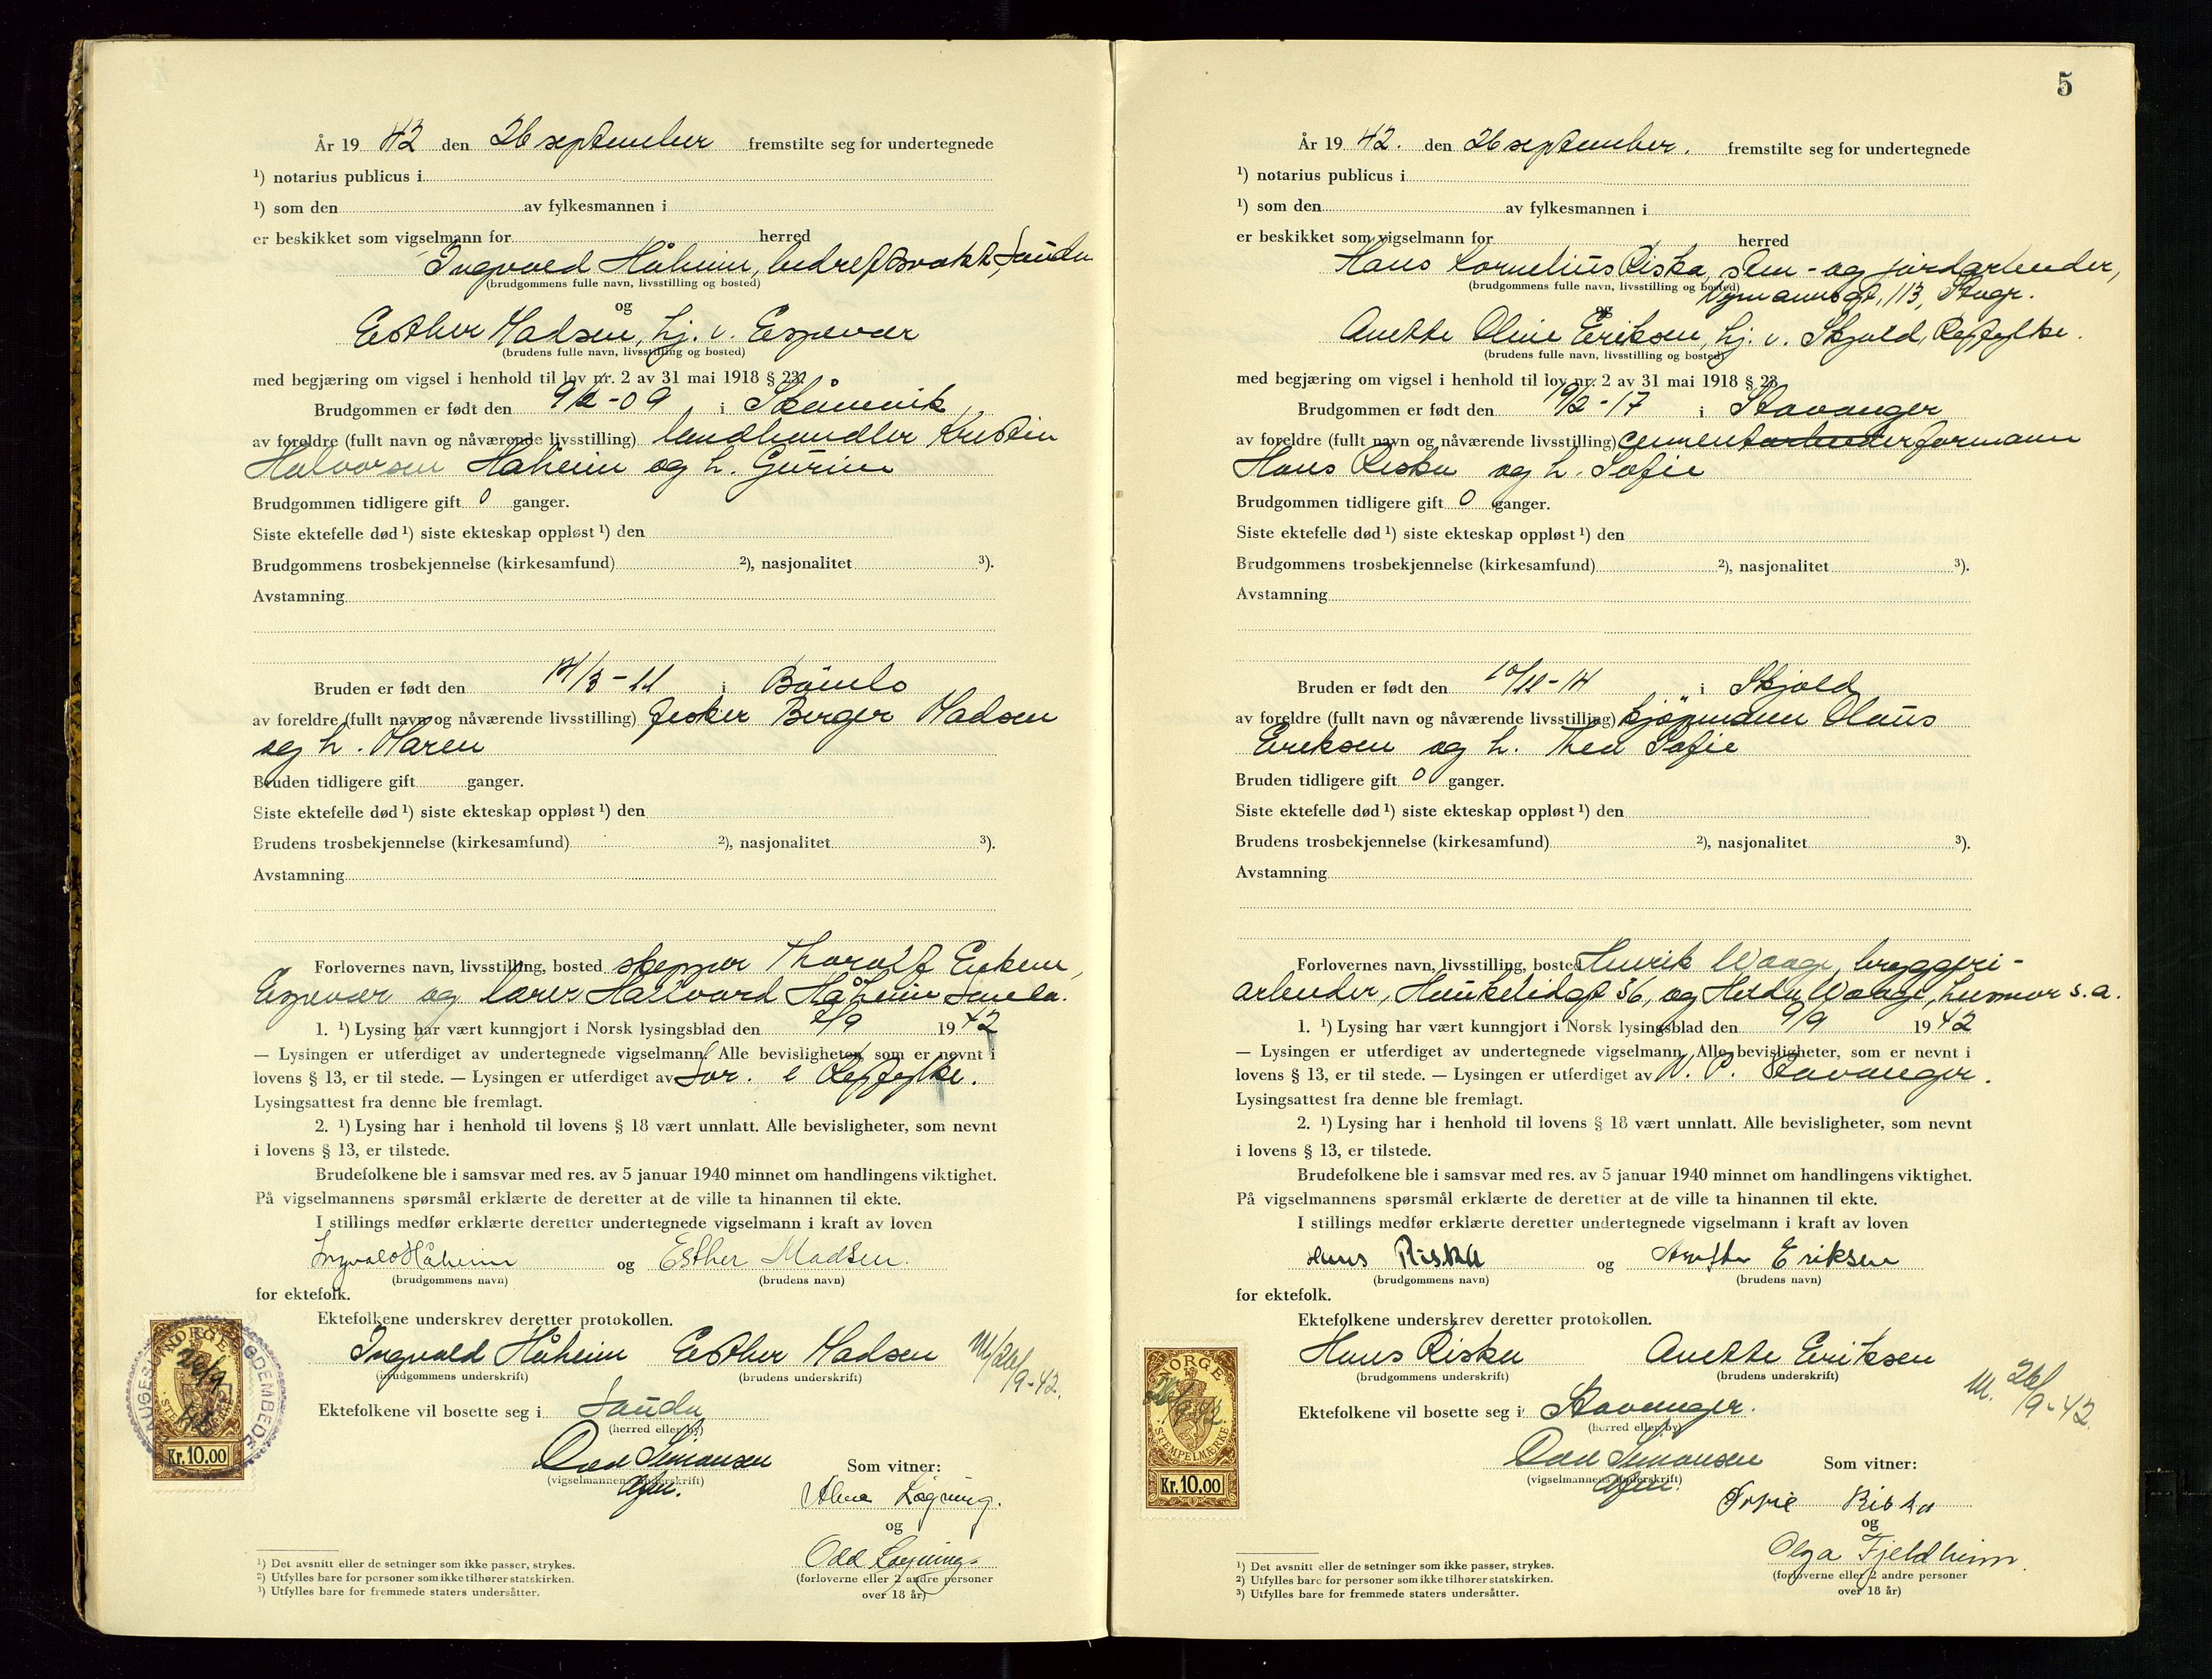 År 19 42 den 26 september fremstilte seg for undertegnede
¹) notarius publicus i
¹) som den av fylkesmannen i
er beskikket som vigselmann for herred
Ingvald Håheim, Sauda
(brudgommens fulle navn, livsstilling og bosted)
og
Esther Madsen, hj. v. Espevær
(brudens fulle navn, livsstilling og bosted)
med begjæring om vigsel i henhold til lov nr. 2 av 31 mai 1918 § 23.
Brudgommen er født den 9/2-09 i Skånevik
av foreldre (fullt navn og nåværende livsstilling) landhandler Kristin
Halvorsen Håheim og h. Gurine
Brudgommen tidligere gift 0 ganger.
Siste ektefelle død ¹) siste ekteskap oppløst ¹) den
Brudgommens trosbekjennelse (kirkesamfund) ²), nasjonalitet ³).
Avstamning
Bruden er født den 14/3-11 i Bömlo
av foreldre (fullt navn og nåværende livsstilling) fisker Berger Madsen
og h. Maren
Bruden tidligere gift ganger.
Siste ektefelle død ¹) siste ekteskap oppløst ¹) den
Brudens trosbekjennelse (kirkesamfund) ²), nasjonalitet ³).
Avstamning
Forlovernes navn, livsstilling, bosted skipper Thoralf
Espevær og lærer Halvard Håheim Sauda.
1. ¹) Lysing har vært kunngjort i Norsk lysingsblad den /9 19 42
— Lysingen er utferdiget av undertegnede vigselmann. Alle bevisligheter, som er nevnt i
lovens § 13, er til stede. — Lysingen er utferdiget av Sor. i Ryfylke.
Lysingsattest fra denne ble fremlagt.
2. ¹) Lysing har i henhold til lovens § 18 vært unnlatt. Alle bevisligheter, som nevnt
i lovens § 13, er tilstede.
Brudefolkene ble i samsvar med res. av 5 januar 1940 minnet om handlingens viktighet.
På vigselmannens spørsmål erklærte de deretter at de ville ta hinannen til ekte.
I stillings medfør erklærte deretter undertegnede vigselmann i kraft av loven
Ingvald Håheim og Esther Madsen.
(brudgommens navn) (brudens navn)
for ektefolk.
Ektefolkene underskrev deretter protokollen.
Ingvald Håheim Esther Madsen
(brudgommens underskrift) (brudens underskrift)
M/26/9-42.
Ektefolkene vil bosette seg i Sauda
(herred eller by)
Simonsen
(vigselmannens underskrift)
Som vitner:
Alma Lægreid.
og
Odd
(forloverne eller 2 andre personer
over 18 år)
NORGE
26/9
42
STEMPELMÆRKE
Kr. 10.00
¹) Det avsnitt eller de setninger som ikke passer, strykes.
²) Utfylles bare for personer som ikke tilhører statskirken.
³) Utfylles bare for fremmede staters undersåtter.
5
År 19 42. den 26 september. fremstilte seg for undertegnede
¹) notarius publicus i
¹) som den av fylkesmannen i
er beskikket som vigselmann for herred
Hans Kornelius Riska, sten- og jordarbeider,
(brudgommens fulle navn, livsstilling og bosted)
Nymannsgt. 113, Stvgr.
og
Anette Oline Eriksen, hj. v. Skjold, Ryfylke.
(brudens fulle navn, livsstilling og bosted)
med begjæring om vigsel i henhold til lov nr. 2 av 31 mai 1918 § 23
Brudgommen er født den 19/2-17 i Stavanger
av foreldre (fullt navn og nåværende livsstilling) cementarbeiderformann
Hans Riska og h. Sofie
Brudgommen tidligere gift 0 ganger.
Siste ektefelle død ¹) siste ekteskap oppløst ¹) den
Brudgommens trosbekjennelse (kirkesamfund) ²), nasjonalitet ³).
Avstamning
Bruden er født den 10/12-14 i Skjold
av foreldre (fullt navn og nåværende livsstilling) kjöpmann Olaus
Eriksen og h. Thea Sofie
Bruden tidligere gift 0 ganger.
Siste ektefelle død ¹) siste ekteskap oppløst ¹) den
Brudens trosbekjennelse (kirkesamfund) ²), nasjonalitet ³).
Avstamning
Forlovernes navn, livsstilling, bosted Henrik Waage, bryggeri-
arbeider, Haukelidgt 36, og Helda Waage, husmor s. a.
1. ¹) Lysing har vært kunngjort i Norsk lysingsblad den 9/9 19 42
— Lysingen er utferdiget av undertegnede vigselmann. Alle bevisligheter, som er nevnt i
lovens § 13, er til stede. — Lysingen er utferdiget av N. P. Stavanger.
Lysingsattest fra denne ble fremlagt.
2. ¹) Lysing har i henhold til lovens § 18 vært unnlatt. Alle bevisligheter, som nevnt
i lovens § 13, er tilstede.
Brudefolkene ble i samsvar med res. av 5 januar 1940 minnet om handlingens viktighet.
På vigselmannens spørsmål erklærte de deretter at de ville ta hinannen til ekte.
I stillings medfør erklærte deretter undertegnede vigselmann i kraft av loven
Hans Riska og Anette Eriksen
(brudgommens navn) (brudens navn)
for ektefolk.
Ektefolkene underskrev deretter protokollen.
Hans Riska Anette Eriksen
(brudgommens underskrift) (brudens underskrift)
M. 26/9-42.
Ektefolkene vil bosette seg i Stavanger.
(herred eller by)
Simonsen
(vigselmannens underskrift)
Som vitner:
Sofie Riska
og
Olga Fjeldheim
(forloverne eller 2 andre personer
over 18 år)
NORGE
26/9 42
STEMPELMÆRKE
Kr. 10.00
¹) Det avsnitt eller de setninger som ikke passer, strykes.
²) Utfylles bare for personer som ikke tilhører statskirken.
³) Utfylles bare for fremmede staters undersåtter.